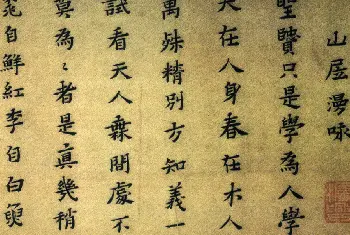 山居漫咏
聖賢只是學為人學
天在人身春在木人
萬殊精別方知義一
試看天人無間處不
莫為〻者是真幾稍
桃自鮮紅李自白